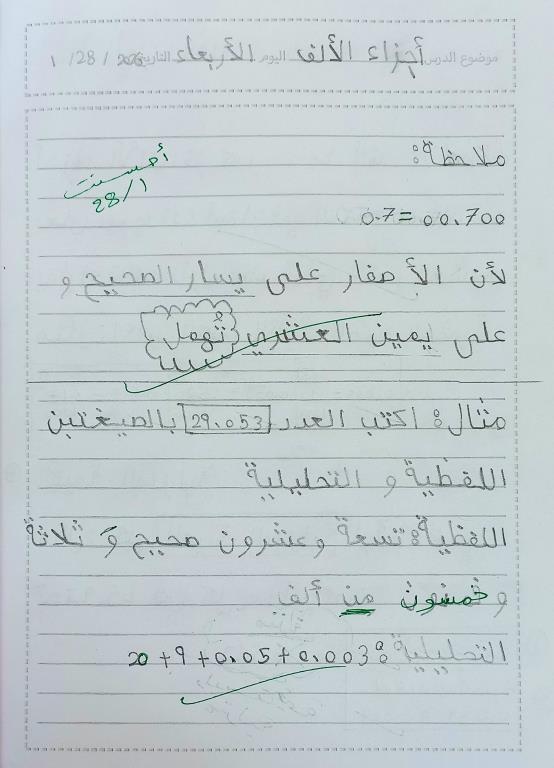 موضوع الدرس أجزاء الألف اليوم الأربعاء التاريخ 1 /28 / 2026
ملاحظة:
أحسنت
28/1
0.7 = 00.700
لأن الأصفار على يسار الصحيح و
على يمين العشري {تُهمل}
مثال: اكتب العدد 29.053 بالصيغتين
اللفظية و التحليلية
اللفظية: تسعة وعشرون صحيح و ثلاثة
وخمسون من ألف
التحليلية: 20 + 9 + 0.05 + 0.003